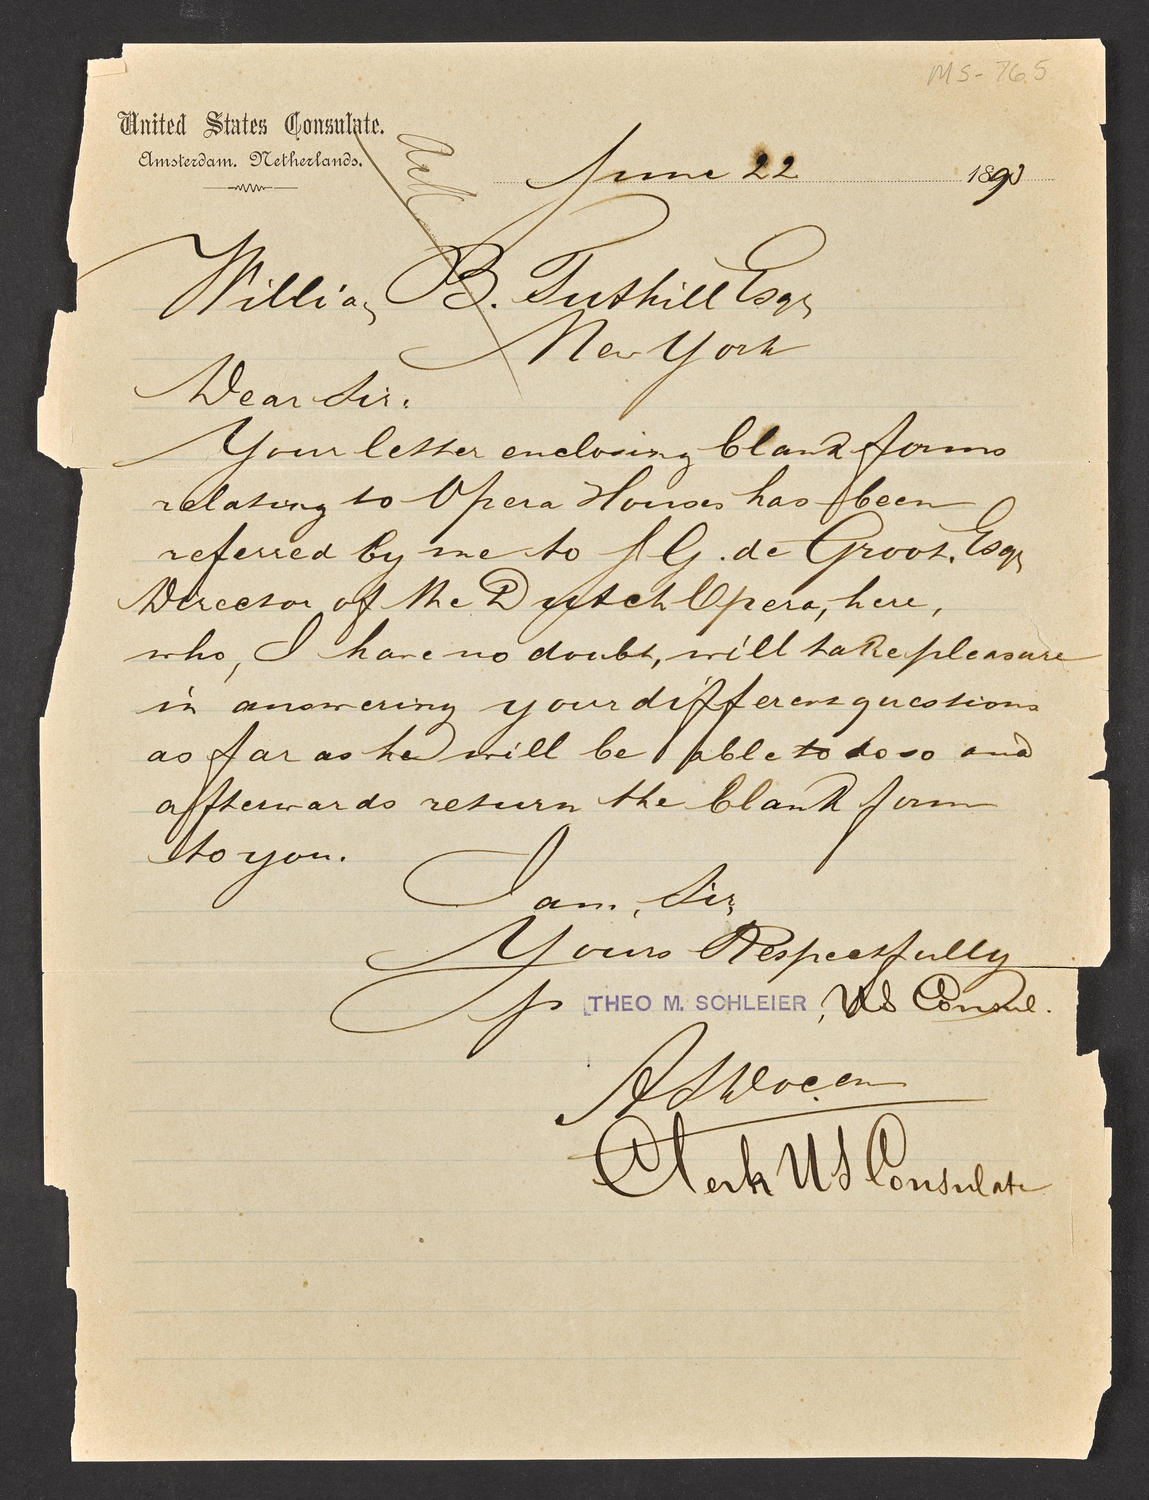 MS-765
United States Consulate.
Amsterdam. Netherlands.
Ack
June 22 1890
William B. Tuthill Esqr
New York
Dear Sir:
Your letter enclosing blank forms
relating to Opera Houses has been
referred by me to J G. de Groot. Esqr
Director of the Dutch Opera, here,
who, I have no doubt, will take pleasure
in answering your different questions
as far as he will be able to do so and
afterwards return the blank form
to you.
I am, Sir,
Yours Respectfully
p THEO M. SCHLEIER, US Consul.
Clerk US Consulate